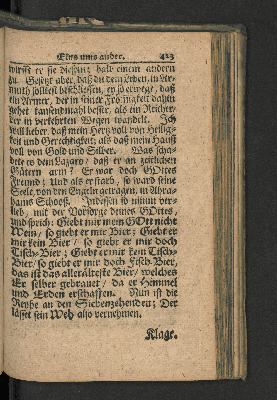 Eins ums ander. 423
wirfft er sie dieseinz halb einem andern
zu. Gesetzt aber, daß du dein Leben, in Ar-
muth soltest beschliessen, ey so erwege, daß
ein Armer, der in seiner Frömigkeit dahin
gehet tausendmahl besser, als ein Reicher,
der in verkehrten Wegen wandelt. Ich
will lieber, daß mein Hertz voll von Heilig-
keit und Gerechtigkeit; als daß mein Hauß
voll von Gold und Silber. Was scha-
dete es dem Lazaro/ daß er an zeitlichen
Gütern arm? Er war doch GOttes
Freund; Und als er starb, so ward seine
Seele, von den Engeln getragen, in Abra-
hams Schooß. Indessen so nimm ver-
lieb, mit der Vorsorge deines GOttes,
und sprich: Giebt mir mein GOtt nicht
Wein/ so giebt er mir Bier; Giebt er
mir kein Bier/ so giebt er mir doch
Tisch-Bier; Giebt er mir kein Tisch-
Bier/ so giebt er mir doch Fisch-Bier,
das ist das allerälteste Bier/ welches
Er selber gebrauet/ da er Himmel
und Erden erschaffen. Nun ist die
Reyhe an den Siebenzehenden; Der
lässet sein Weh also vernehmen.
Klage.